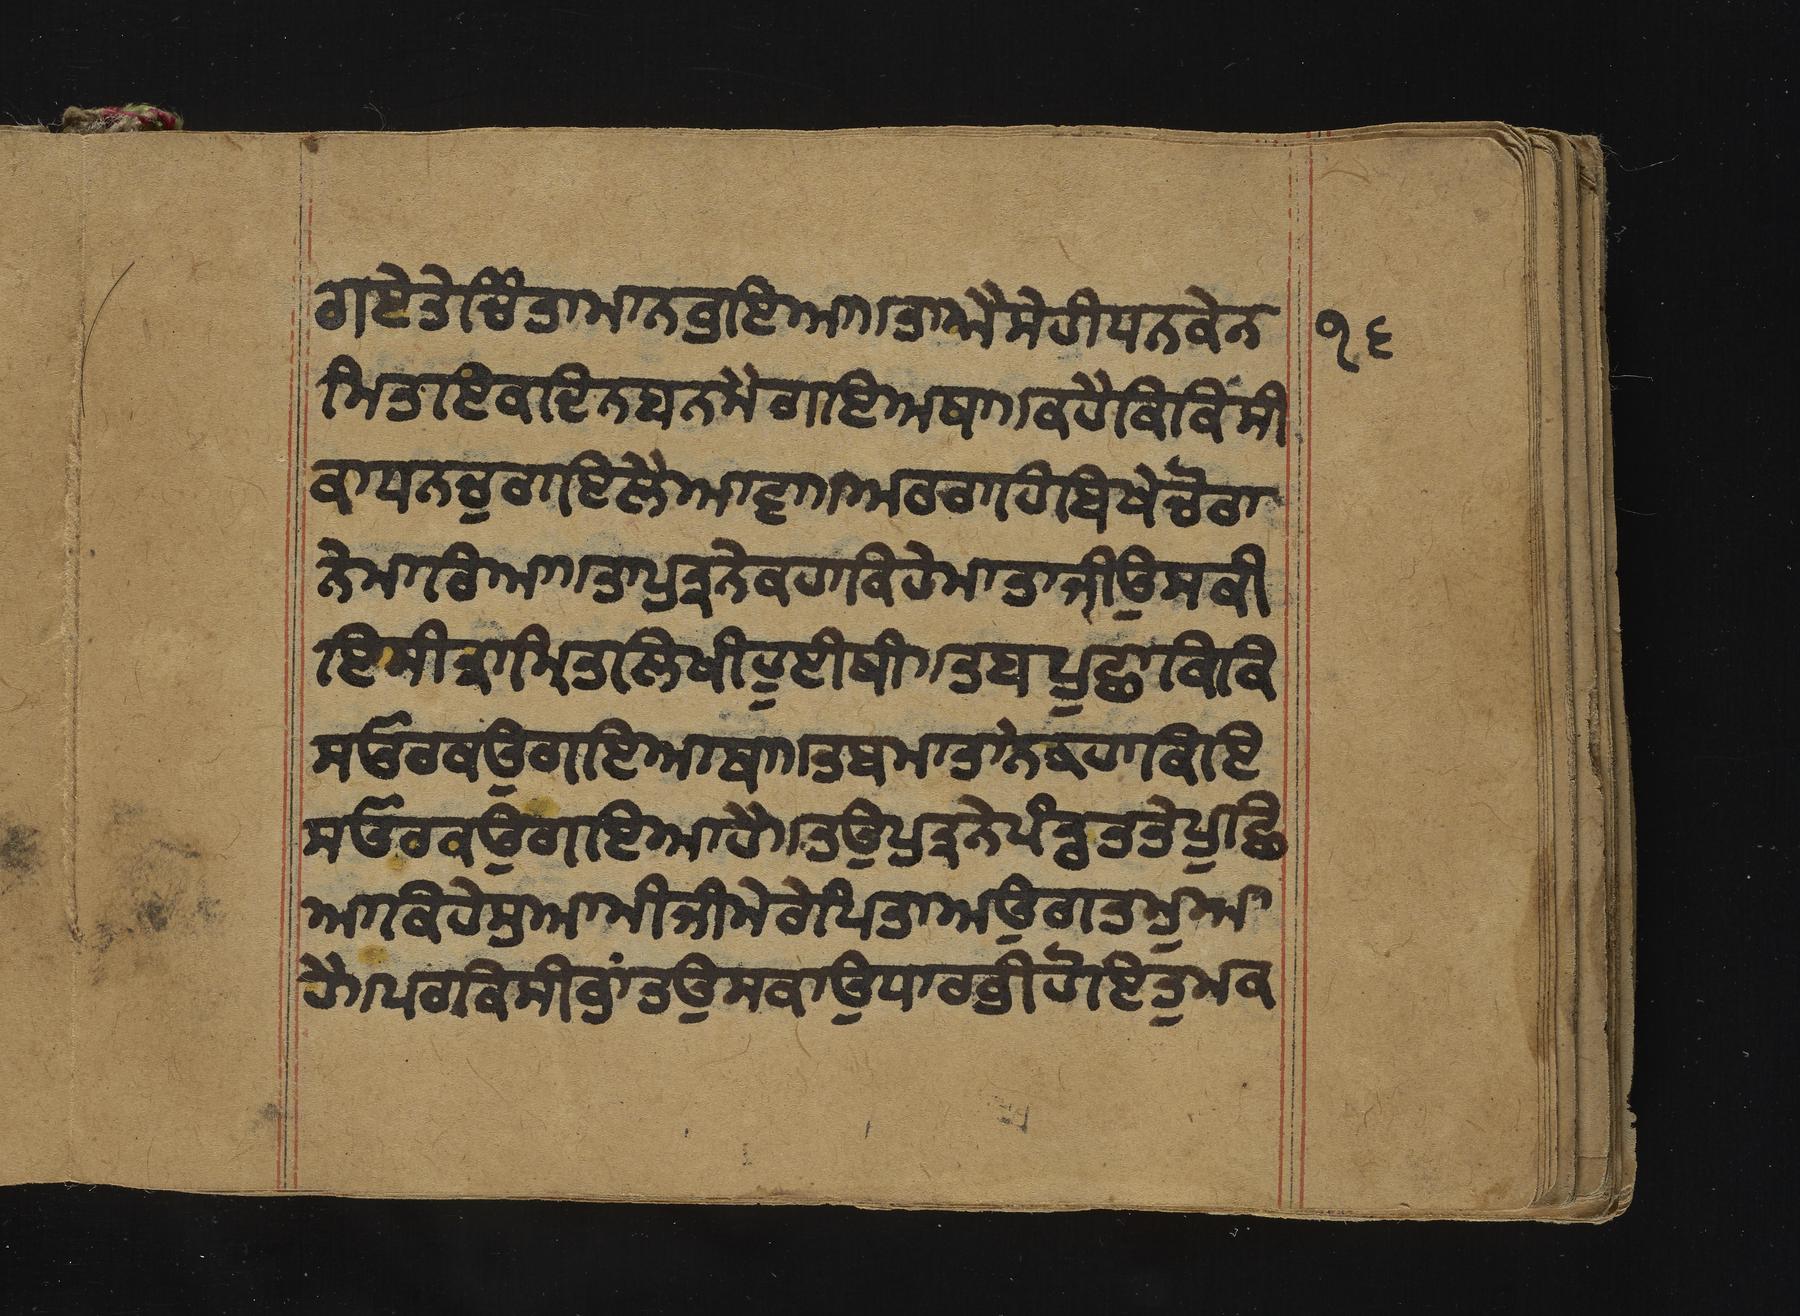 ਗਏਤੇਚਿੰਤਾਮਾਨਭਇਆ॥ਤਾਐਸੇਹੀਧਨਕੇਨ ੧੬
ਮਿਤਇਕਦਿਨਬਨਮੈਗਇਅਥਾ॥ਕਹੈਕਿਕਿਸੀ
ਕਾਧਨਚੁਰਾਇਲੈਆਵਾ॥ਅਰਰਾਹਿਬਿਖੇਚੋਰਾ
ਨੇਮਾਰਿਆ॥ਤਾਪੁਤ੍ਰਨੇਕਹਾਕਿਹੇਮਾਤਾਜੀਉਸਕੀ
ਇਸੀਤ੍ਰਾਮ੍ਰਿਤਲਿਖੀਹੁਈਥੀ॥ਤਬਪੁਛਾਕਿਕਿ
ਸਓਰਕਉਗਇਆਥਾ॥ਤਬਮਾਤਾਨੇਕਹਾਕਿਇ
ਸਓਰਕਉਗਇਆਹੈ॥ਤਉਪੁਤ੍ਰਨੇਪੰਡ੍ਵਤਤੇਪੁਛਿ
ਆਕਿਹੇਸੁਆਮੀਜੀਮੇਰੇਪਿਤਾਅਉਗਤਮੁਆ
ਹੈ॥ਪਰਕਿਸੀਭਾਂਤਉਸਕਾਉਧਾਰਭੀਹੋਇਤੁਮਕ